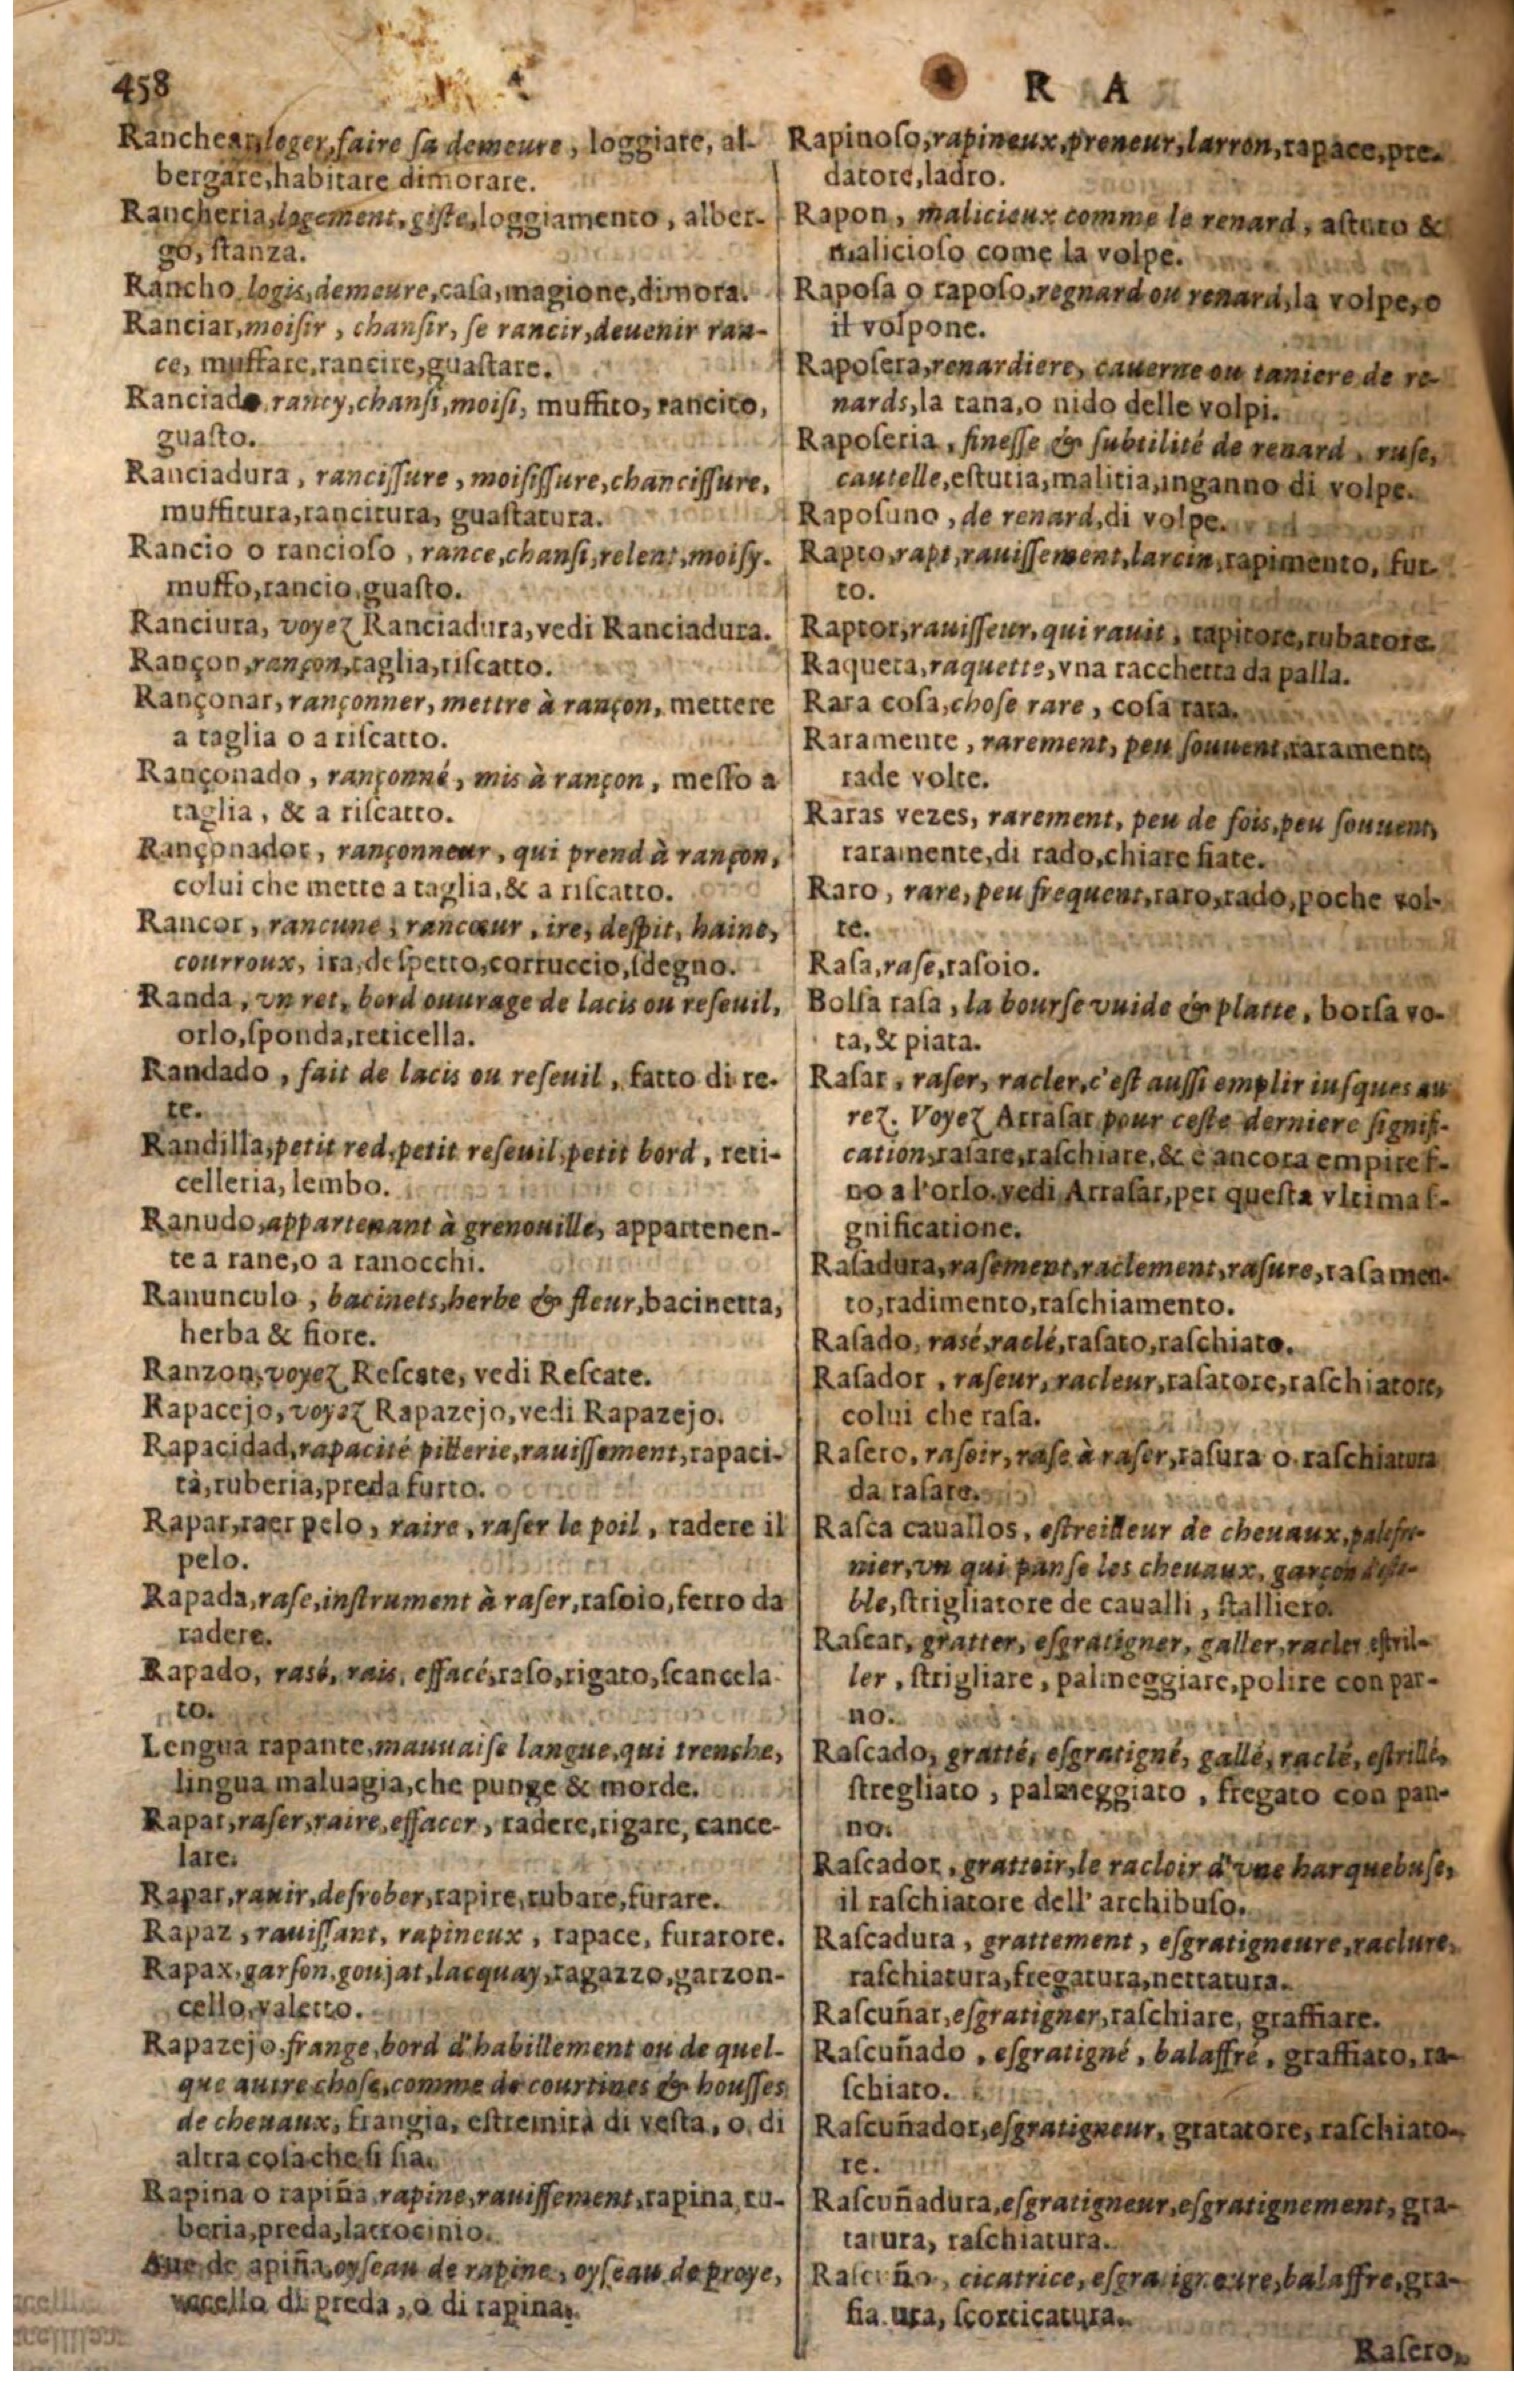 458
R A
Ranchear, loger, faire ſa demeure, loggiare, al-
bergare, habitare dimorare.
Rancheria, logement, giſte, loggiamento, alber-
go, ſtanza.
Rancho, logis, demeure, caſa, magione, dimora.
Ranciar, moiſir, chanſir, ſe rancir, deuenir ran-
ce, muffare, rancire, guaſtare.
Ranciado, rancy, chanſi, moiſi, muffito, rancito,
guaſto.
Ranciadura, ranciſſure, moiſiſſure, chanciſſure,
mufficura, rancitura, guaſtatura.
Rancio o rancioſo, rance, chanſi, relent, moiſy.
muffo, rancio, guaſto.
Ranciura, voyez Ranciadura, vedi Ranciadura.
Rançon, rançon, taglia, riſcatto.
Rançonar, rançonner, mettre à rançon, mettere
a taglia o a riſcatto.
Rançonado, rançonné, mis à rançon, meſſo a
taglia, & a riſcatto.
Rançonador, rançonneur, qui prend à rançon,
colui che mette a taglia, & a riſcatto.
Rancor, rancune, rancœur, ire, deſpit, haine,
courroux, ira, deſpetto, corruccio, ſdegno.
Randa, vn ret, bord ouurage de lacis ou reſeuil,
orlo, ſponda, reticella.
Randado, fait de lacis ou reſeuil, fatto di re-
te.
Randilla, petit red, petit reſeuil, petit bord, reti-
celleria, lembo.
Ranudo, appartenant à grenouille, appartenen-
te a rane, o a ranocchi.
Ranunculo, bacinets, herbe & fleur, bacinetta,
herba & fiore.
Ranzon, voyez Reſcate, vedi Reſcate.
Rapacejo, voyez Rapazejo, vedi Rapazejo.
Rapacidad, rapacité pillerie, rauiſſement, rapaci-
tà, ruberia, preda furto.
Rapar, raer pelo, raire, raſer le poil, radere il
pelo.
Rapada, raſe, inſtrument à raſer, raſoio, ferro da
radere.
Rapado, rasé, rais, effacé, raſo, rigato, ſcancela
to.
Lengua rapante, mauuaiſe langue, qui trenche,
lingua maluagia, che punge & morde.
Rapar, raſer, raire, effacer, radere, rigare, cance-
lare.
Rapar, rauir, deſrober, rapire, rubare, furare.
Rapaz, rauiſſant, rapineux, rapace, furatore.
Rapax, garſon, goujat, lacquay, ragazzo, garzon-
cello, valetto.
Rapazejo, frange, bord d'habillement ou de quel-
que autre choſe, comme de courtines & houſſes
de cheuaux, frangia, eſtremità di veſta, o di
altra coſa che ſi ſia.
Rapina o rapiña, rapine, rauiſſement, rapina, ru-
beria, preda, latrocinio.
Aue de apiña, oyſeau de rapine, oyſeau de proye,
vccello di preda, o di rapina.
Rapinoſo, rapineux, preneur, larron, rapace, pre-
datore, ladro.
Rapon, malicieux comme le renard, aſtuto &
malicioſo come la volpe.
Rapoſa o rapoſo, regnard ou renard, la volpe, o
il volpone.
Rapoſera, renardiere, cauerne ou taniere de re-
nards, la tana, o nido delle volpi.
Rapoſeria, fineſſe & ſubtilité de renard, ruſe,
cautelle, eſtutia, malitia, inganno di volpe.
Rapoſuno, de renard, di volpe.
Rapto, rapt, rauiſſement, larcin, rapimento, fur-
to.
Raptor, rauiſſeur, qui rauit, rapitore, rubatore.
Raqueta, raquette, vna racchetta da palla.
Rara coſa, choſe rare, coſa rara.
Raramente, rarement, peu ſouuent, raramente,
rade volte.
Raras vezes, rarement, peu de fois, peu ſouuent,
raramente, di rado, chiare fiate.
Raro, rare, peu frequent, raro, rado, poche vol-
te.
Raſa, raſe, raſoio.
Bolſa raſa, la bourſe vuide & platte, borſa vo-
ta, & piata.
Raſar, raſer, racler, c'eſt auſſi emplir iuſques au
rez. Voyez Arraſar pour ceſte derniere ſignifi-
cation, raſare, raſchiare, & è ancora empire ſ-
no a l'orlo. vedi Arraſar, per queſta vltima ſ-
gnificatione.
Raſadura, raſement, raclement, raſure, raſamen-
to, radimento, raſchiamento.
Raſado, rasé, raclé, raſato, raſchiato.
Raſador, raſeur, racleur, raſatore, raſchiatore,
colui che raſa.
Raſero, raſoir, raſe à raſer, raſura o raſchiatura
da raſare.
Raſca cauallos, eſtreilleur de cheuaux, palefre-
nier, vn qui panſe les cheuaux, garçon d'eſta-
ble, ſtrigliatore de caualli, ſtalliero.
Raſcar, gratter, eſgratigner, galler, racler eſtril-
ler, ſtrigliare, palmeggiare, polire con pan-
no.
Raſcado, gratté, eſgratigné, gallé, raclé, eſtrillé,
stregliato, palmeggiato, fregato con pan-
no.
Raſcador, grattoir, le racloir d'vne harquebuſe,
il raſchiatore dell' archibuſo.
Raſcadura, grattement, eſgratigneure, raclure,
raſchiatura, fregatura, nettatura.
Raſcuñar, eſgratigner, raſchiare, graffiare.
Raſcuñado, eſgratigné, balaffré, graffiato, ra-
ſchiato.
Raſcuñador, eſgratigneur, gratatore, raſchiato-
re.
Raſcuñadura, eſgratigneur, eſgratignement, gra-
tatura, raſchiatura.
Raſcuño, cicatrice, eſgratigneure, balaffre, gra-
fiatura, ſcorticatura.
Raſero,